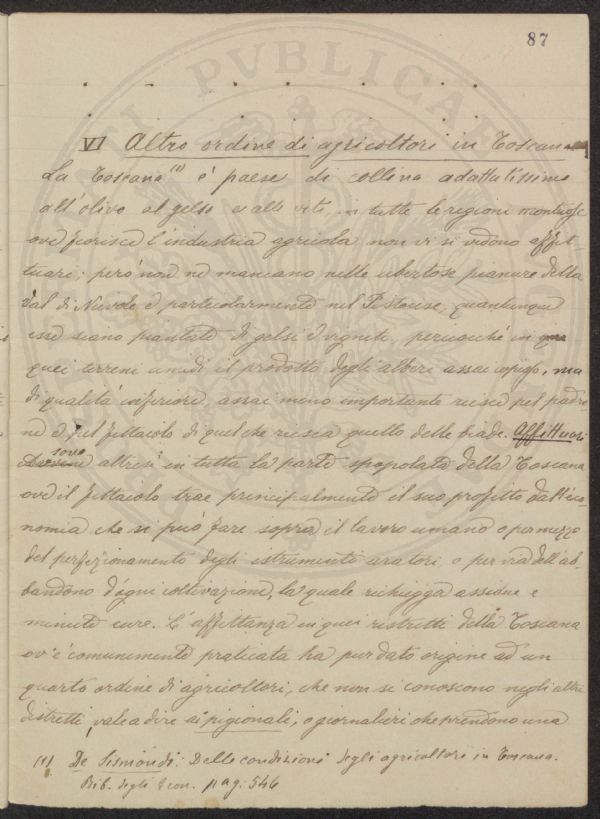 87
VI Altro ordine di agricoltori in Toscana
La Toscana (1) è paese di collina adattatissimo
all'olivo al gelso e alle viti, in tutte le regioni montuose
ove fiorisce l'industria agricola non vi si vedono affit-
tuari; però non ne mancano nelle ubertose pianure della
Val di Nievole e particolarmente nel Pistoiese, quantunque
esse siano piantate di gelsi e vigneti, perciocchè in
quei terreni umidi il prodotto degli alberi assai copioso, ma
di qualità inferiore, assai meno importante riesce pel padro-
ne e pel fittaiolo di quel che riesca quello delle biade. Affittuari
sono altresì in tutta la parte spopolata della Toscana
ove il fittaiolo trae principalmente il suo profitto dall'eco-
nomia che si può fare sopra il lavoro umano o per mezzo
del perfezionamento degli istrumenti aratori, o per via dell'ab-
bandono d'ogni coltivazione, la quale richiegga assione e
minute cure. L'affittanza in quei ristretti della Toscana
ov'è comunemente praticata ha pur dato origine ad un
quarto ordine di agricoltori, che non si conoscono negli altri
distretti, vale a dire ai pigionali, o giornalieri che prendono una
(1) De Sismondi: Delle condizioni degli agricoltori in Toscana.
Bib. degli Econ. pag. 546